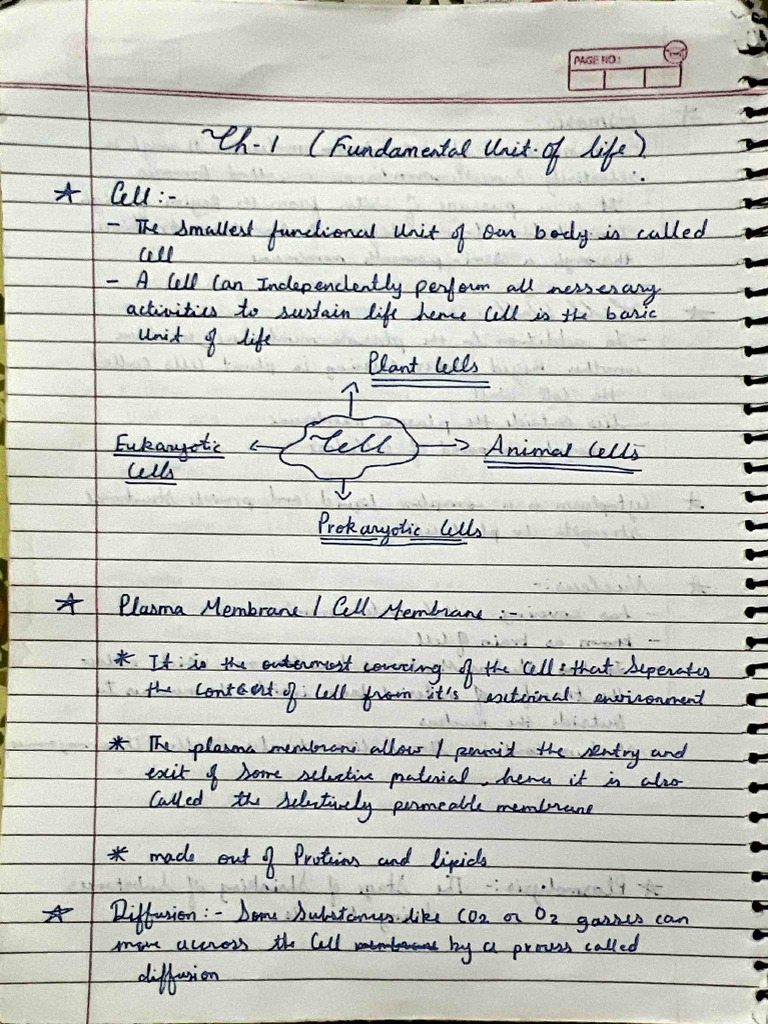 PAGE NO.:
Ch-1 (Fundamental Unit of life)
Cell :-
- The smallest functional Unit of Our body is called
Cell
- A Cell Can Independently perform all nessesary
activities to sustain life hence Cell is the basic
Unit of life
Plant Cells
Eukaryotic
Cells
Cell
Animal Cells
Prokaryotic Cells
Plasma Membrane / Cell Membrane :-
* It is the outermost covering of the Cell that Seperates
the Content of Cell from it's external environment
* The plasma membrane allow / permit the entry and
exit of Some selective material, hence it is also
Called the selectively permeable membrane
* made out of Proteins and lipids
Diffusion :- Some Substances like CO2 or O2 gasses can
move accross the Cell membrane by a process called
diffusion